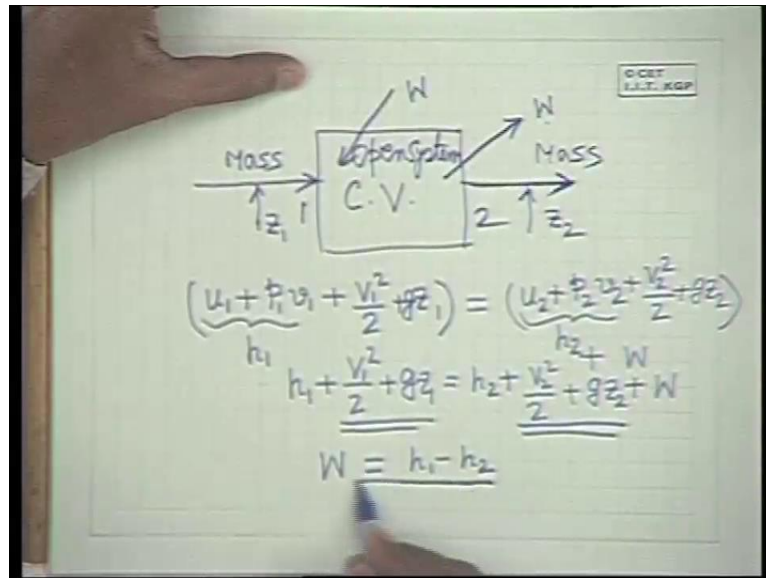 © CET
I.I.T. KGP
W
W
Mass
Open System
Mass
C.V.
z₁
1
2
z₂
(u₁ + p₁v₁ + V₁²/2 + gz₁) = (u₂ + p₂v₂ + V₂²/2 + gz₂)
h₁
h₂ + W
h₁ + V₁²/2 + gz₁ = h₂ + V₂²/2 + gz₂ + W
W = h₁ - h₂